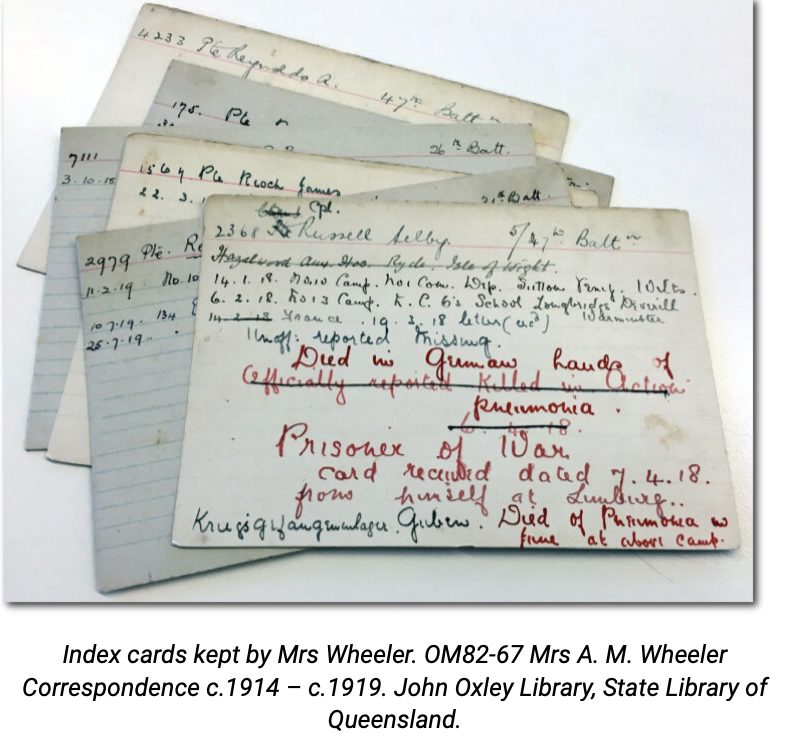 4233 Pte Reynolds A. 47th Battn
175. Pte
26th Batt.
7111
3.10.18
1564 Pte Rioch James
22. 3. 1
21st Batt.
2979 Pte. Re
11-2-19. No.10
10.7.19. 134
25.7.19.
Cpl.
2368 Russell Selby. 5/47th Battn
Hazelwood Aux. Hos. Ryde. Isle of Wight.
14. 1. 18. No10 Camp. No1 Com. Dep. Sutton Veny. Wilts.
6. 2. 18. No13 Camp. K. C. 6's School Longbridge Deverill
14.2.18 France. 19. 3. 18 letter Warminster
Unoff: reported Missing.
Died in German hands of
Officially reported Killed in Action
pneumonia.
6. 4. 18.
Prisoner of War
card received dated 7. 4. 18.
from himself at Limburg..
Kriegsgefangenenlager. Guben. Died of Pneumonia in
June at above camp.
Index cards kept by Mrs Wheeler. OM82-67 Mrs A. M. Wheeler
Correspondence c.1914 – c.1919. John Oxley Library, State Library of
Queensland.